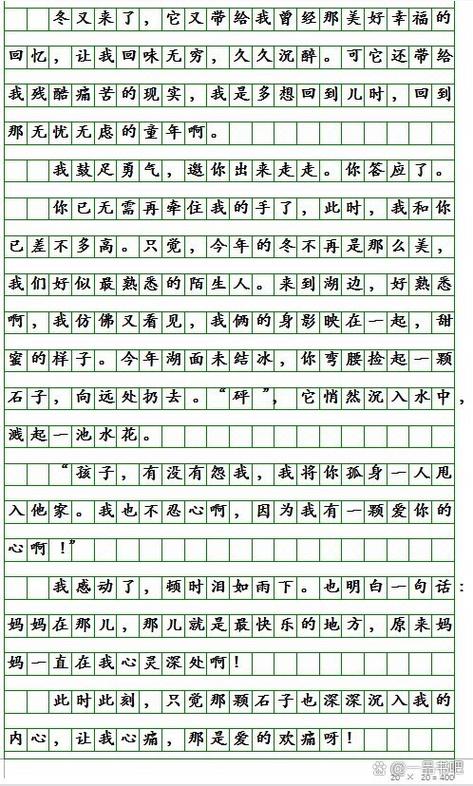 冬又来了，它又带给我曾经那美好幸福的
回忆，让我回味无穷，久久沉醉。可它还带给
我残酷痛苦的现实，我是多想回到儿时，回到
那无忧无虑的童年啊。
我鼓足勇气，邀你出来走走。你答应了。
你已无需再牵住我的手了，此时，我和你
已差不多高。只觉，今年的冬不再是那么美，
我们好似最熟悉的陌生人。来到湖边，好熟悉
啊，我仿佛又看见，我俩的身影映在一起，甜
蜜的样子。今年湖面未结冰，你弯腰捡起一颗
石子，向远处扔去。“砰”，它悄然沉入水中，
溅起一池水花。
“孩子，有没有怨我，我将你孤身一人甩
入他家。我也不忍心啊，因为我有一颗爱你的
心啊！”
我感动了，顿时泪如雨下。也明白一句话：
妈妈在那儿，那儿就是最快乐的地方，原来妈
妈一直在我心灵深处啊！
此时此刻，只觉那颗石子也深深沉入我的
内心，让我心痛，那是爱的欢痛呀！
@一品书吧
20 × 20=400